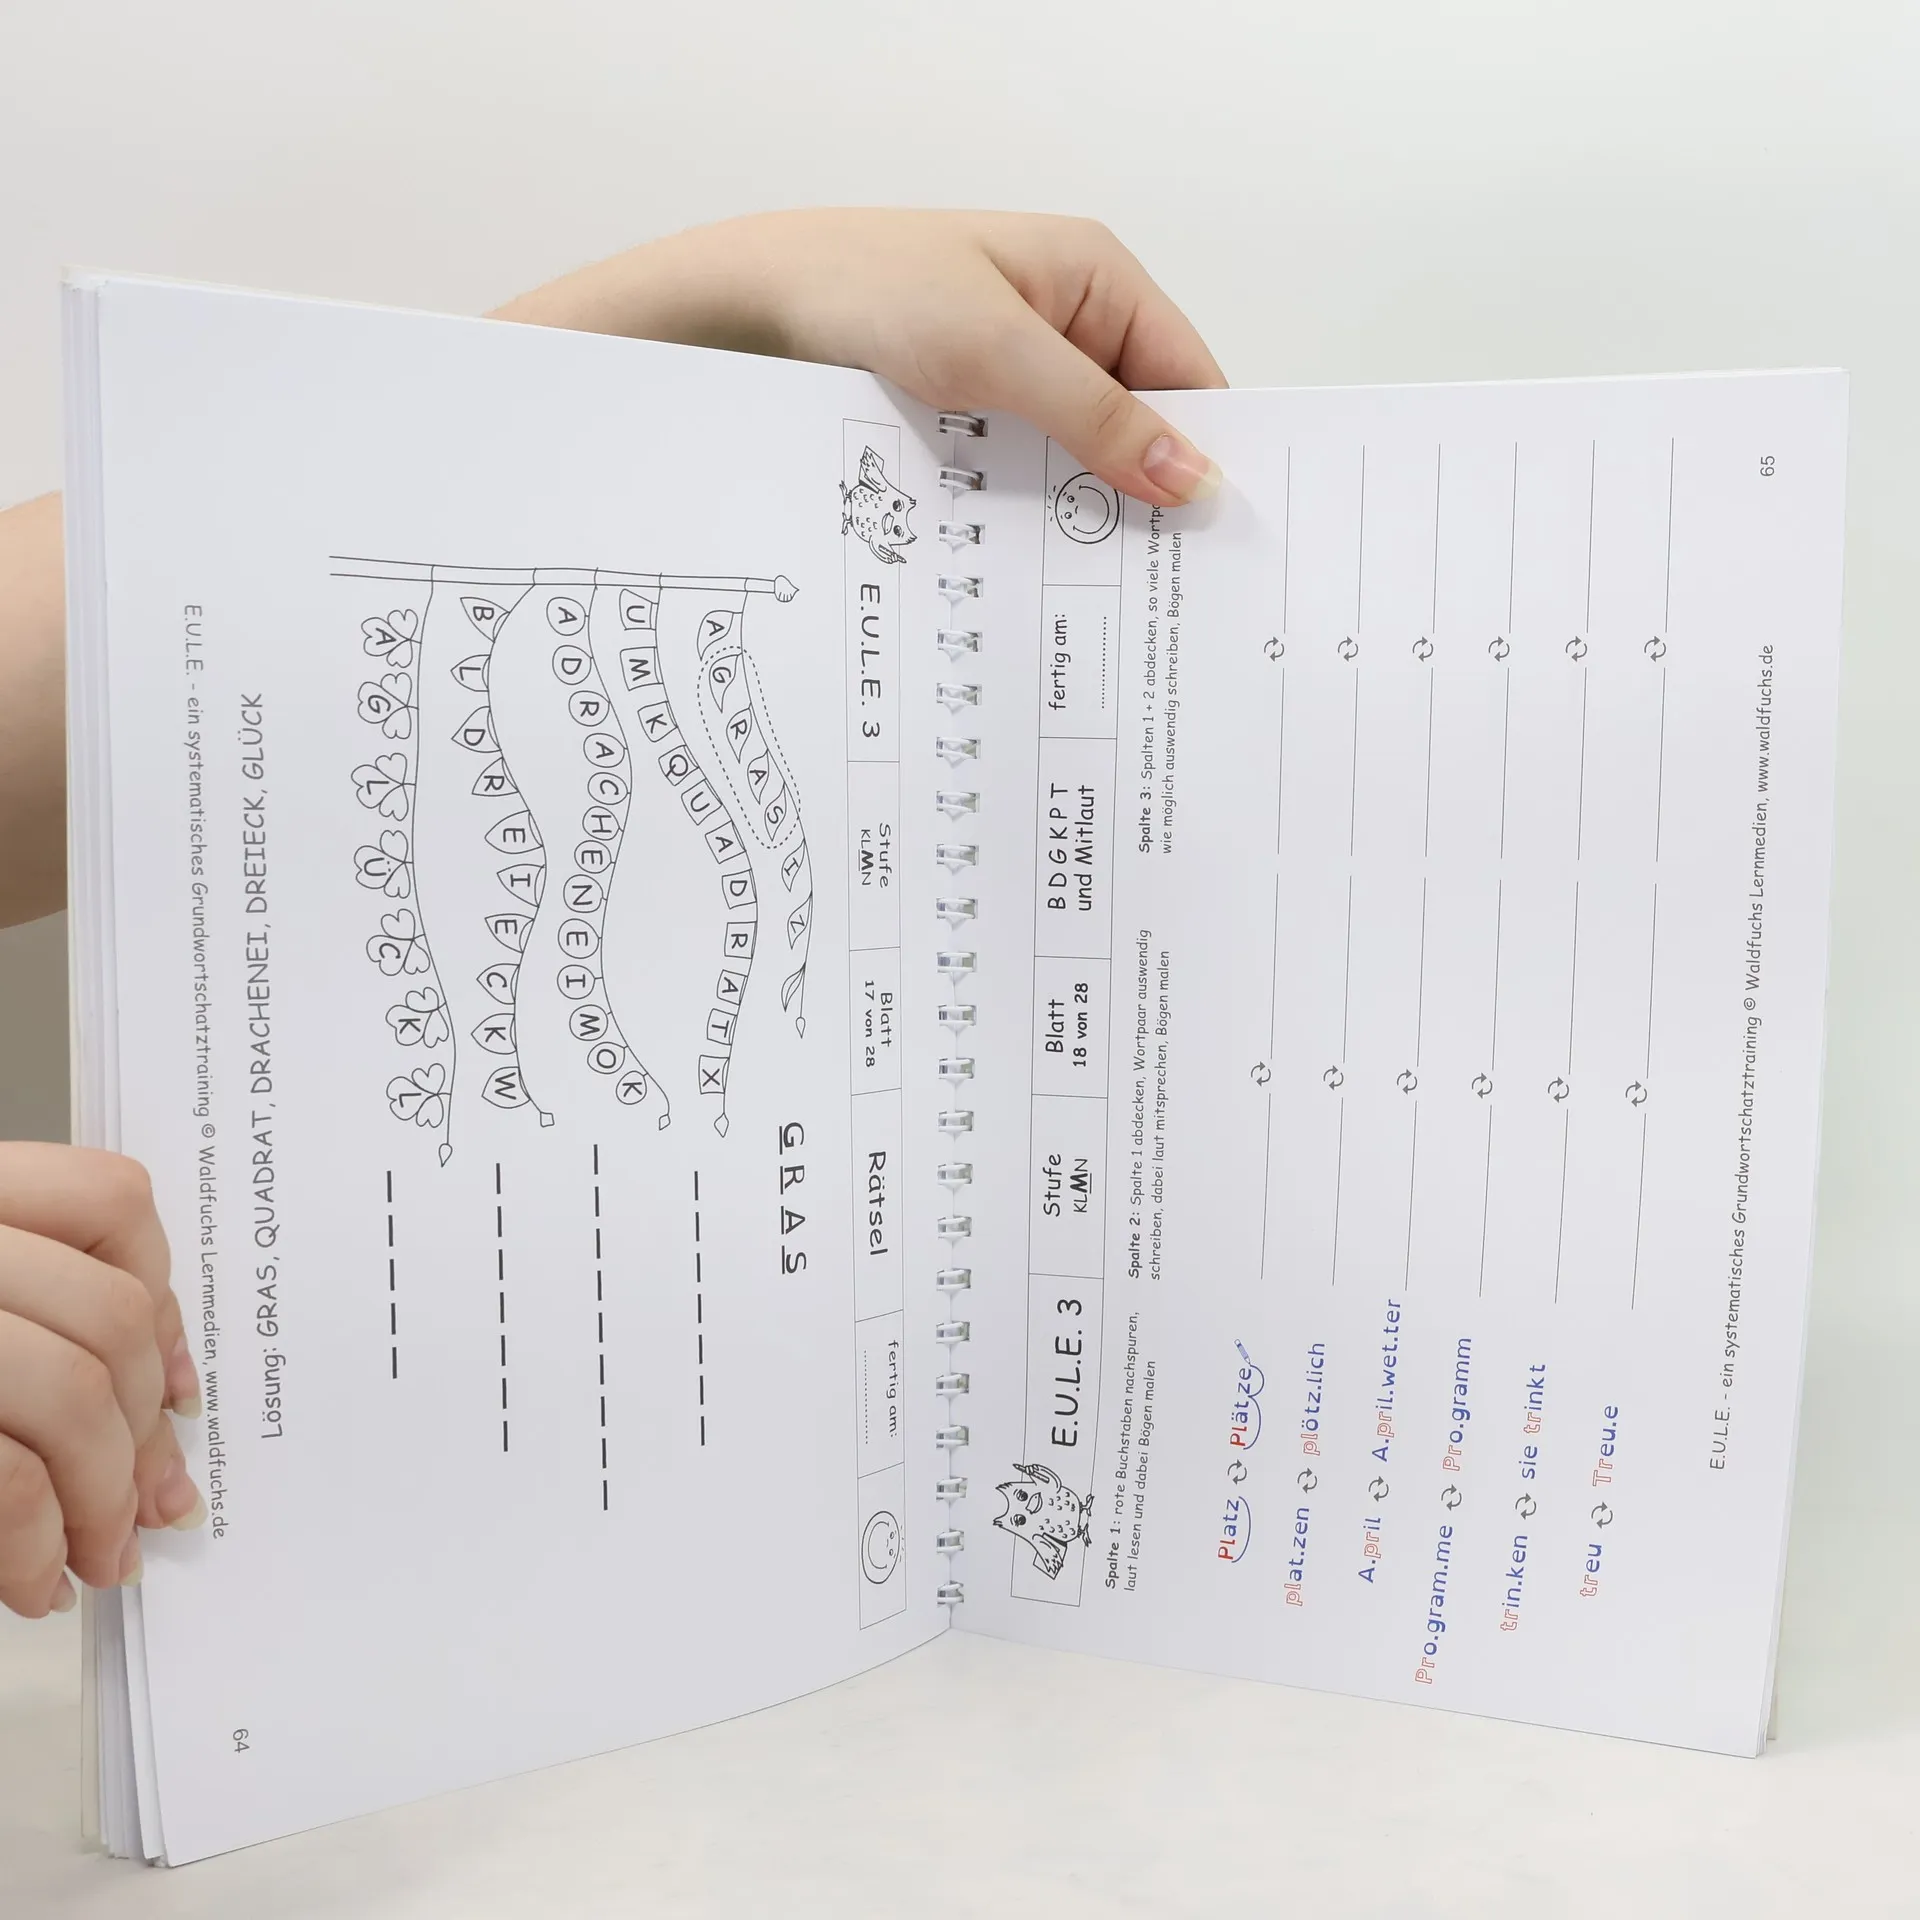 E.U.L.E. 3
Stufe
KLMN
Blatt
17 von 28
Rätsel
fertig am:
AGRASIZ
GRAS
UMKQUADRATX
ADRACHENEIMOK
BLDREIECKW
AGLÜCKL
Lösung: GRAS, QUADRAT, DRACHENEI, DREIECK, GLÜCK
E.U.L.E. - ein systematisches Grundwortschatztraining © Waldfuchs Lernmedien, www.waldfuchs.de
64
E.U.L.E. 3
Stufe
KLMN
Blatt
18 von 28
B D G K P T
und Mitlaut
fertig am:
Spalte 1: rote Buchstaben nachspuren,
laut lesen und dabei Bögen malen
Spalte 2: Spalte 1 abdecken, Wortpaar auswendig
schreiben, dabei laut mitsprechen, Bögen malen
Spalte 3: Spalten 1 + 2 abdecken, so viele
wie möglich auswendig schreiben, Bögen malen
Platz Plätze
plat.zen plötz.lich
A.pril A.pril.wet.ter
Pro.gram.me Pro.gramm
trin.ken sie trinkt
treu Treu.e
E.U.L.E. - ein systematisches Grundwortschatztraining © Waldfuchs Lernmedien, www.waldfuchs.de
65